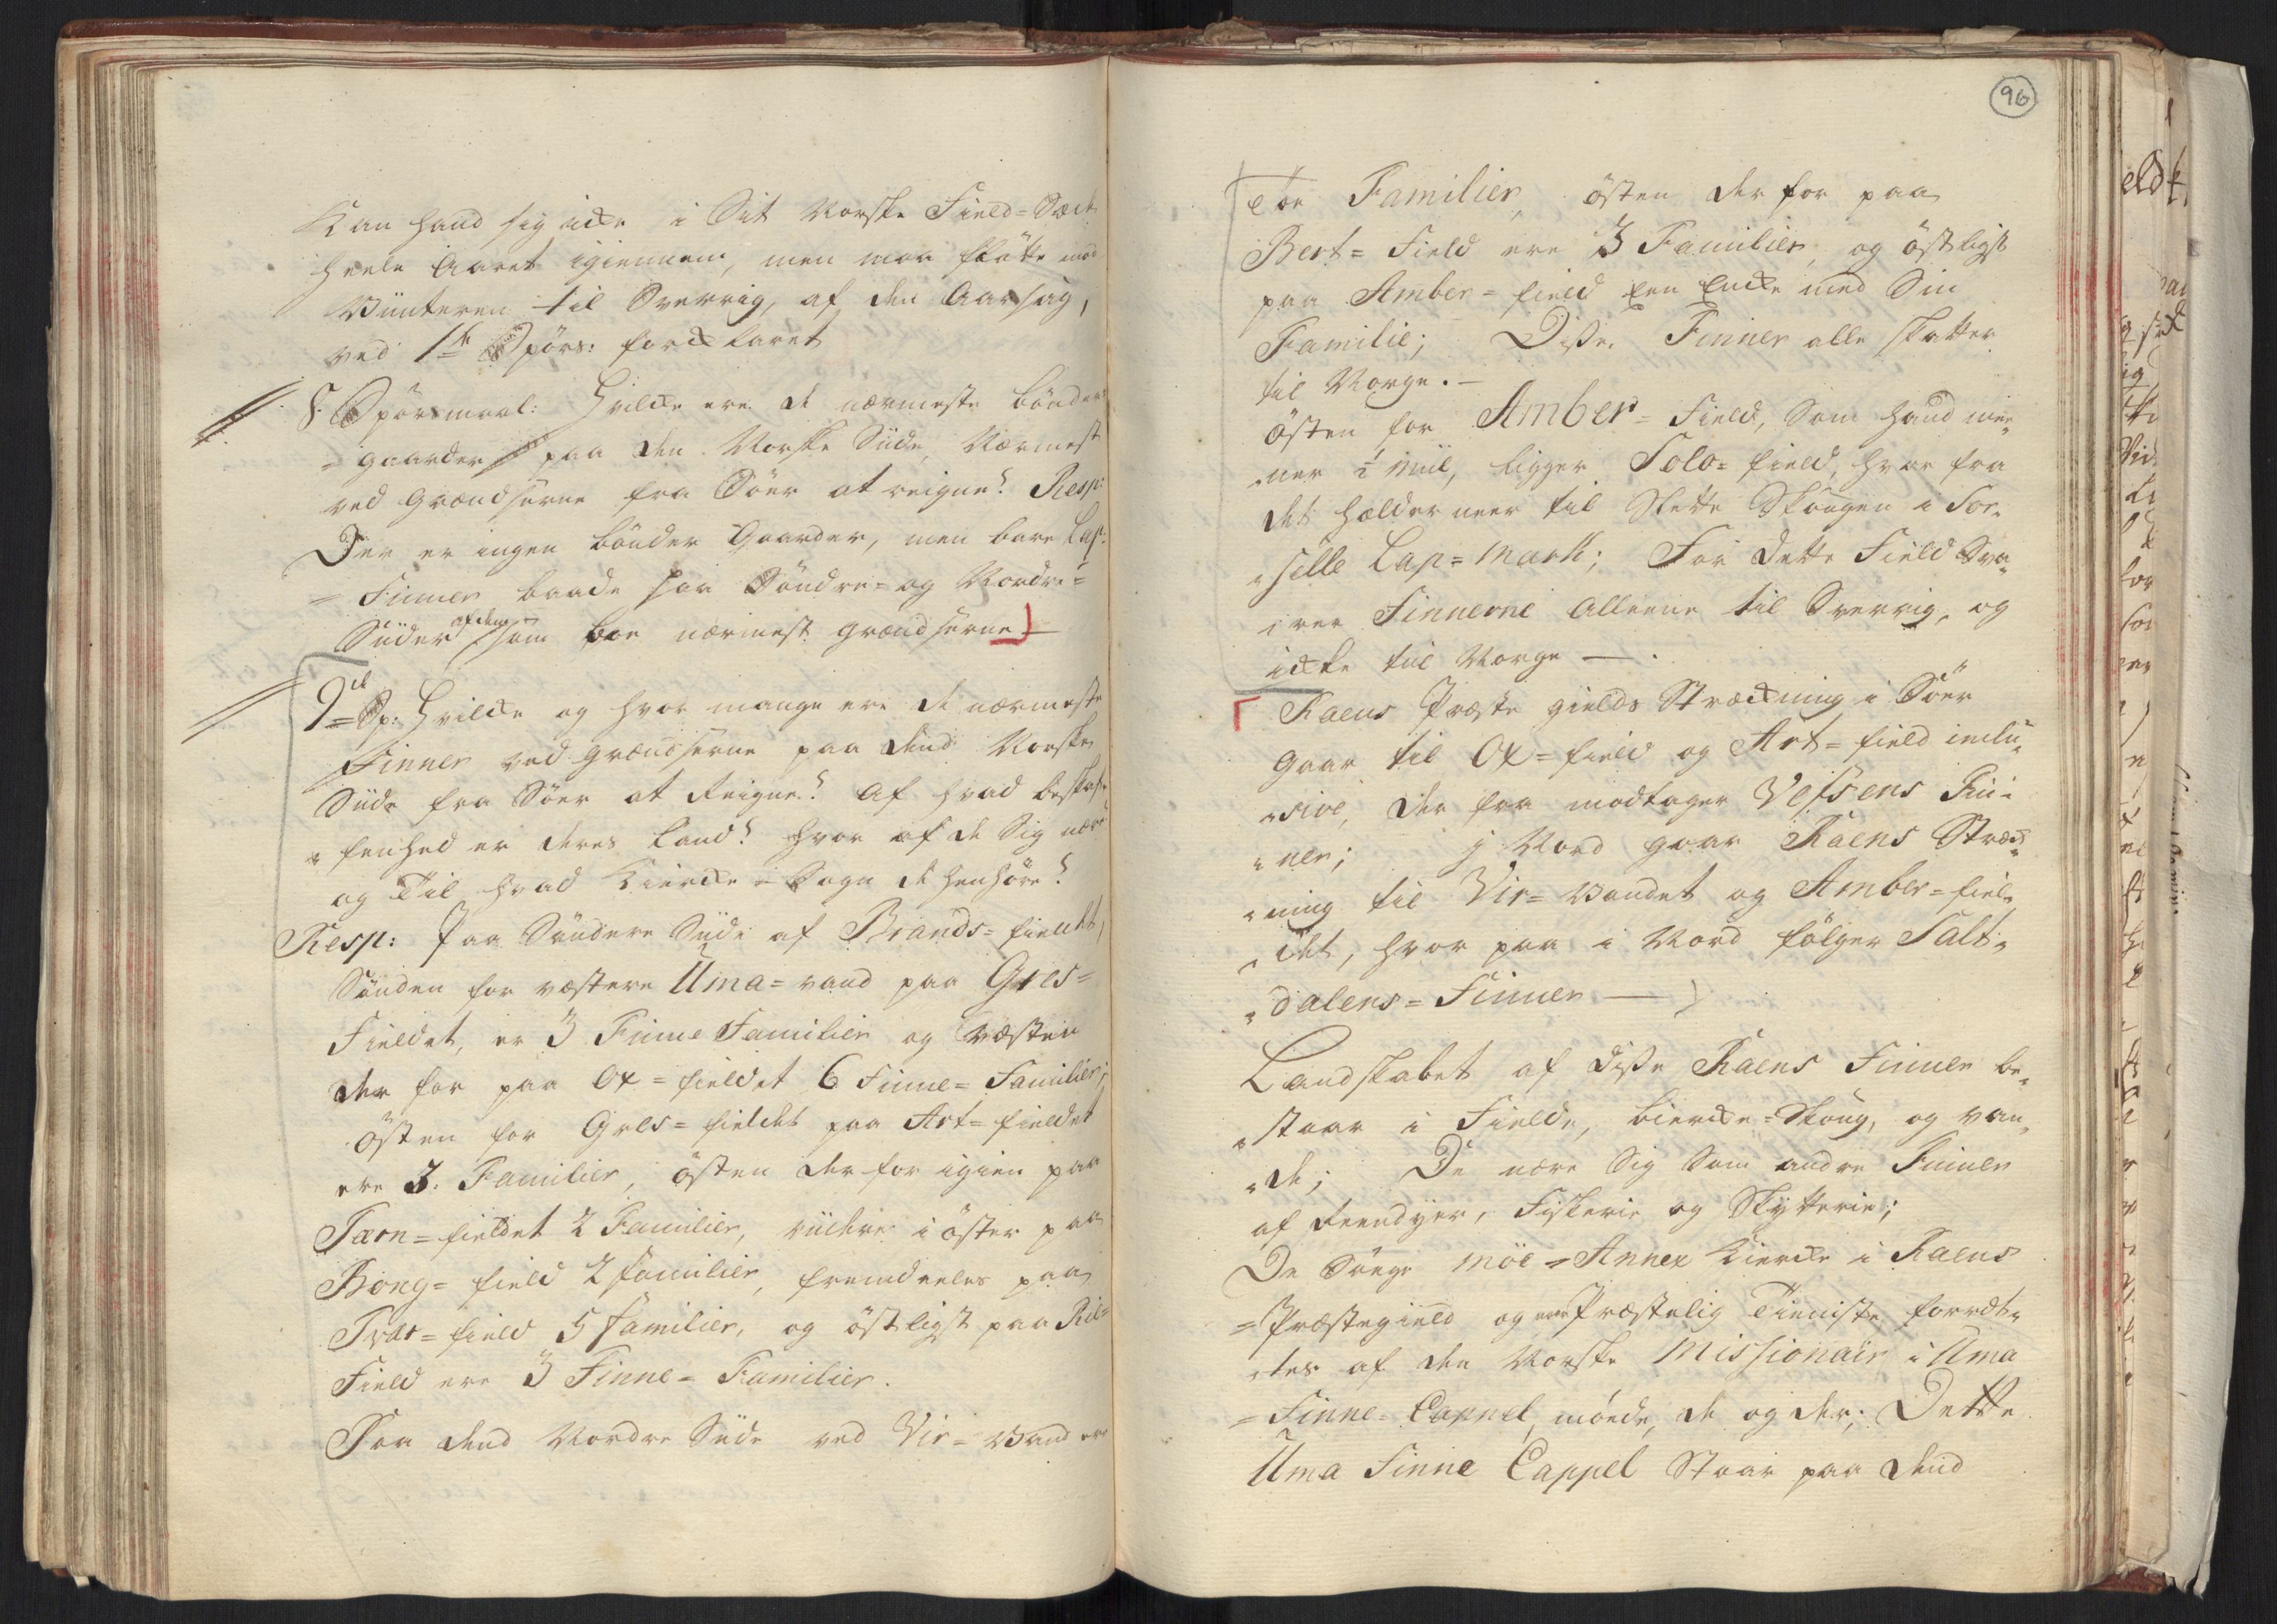 Kan hand sig icke i Sit Norske Field=Sæde
heele Aaret igiennem, men maa flötte mod
Vinteren til Sverrig, af den Aarsag,
ved 1te Spörs: forcklaret
8. Spörsmaal: Hvilcke ere de nærmeste bönder
=gaarder paa den Norske Siide, Nærmest
ved Grændserne fra Söer at reigne? Resp:
Der er ingen bönder Gaarder, men bare Lap=
=Finner baade paa Söndre= og Nordre=
Siider af dem som boe nærmest grændserne —
9de Sp: Hvilcke og hvor mange ere de nærmeste
Finner ved grændserne paa dend Norske
Siide fra Söer at reigne? Af hvad beskaf=
=fenhed er deres Land? hvor af de Sig nære
og Til hvad Kiercke=Sogn de henhöre?
Resp: Paa Söndere Siide af Brands=fieldet,
Sönden for væstere Uma=vand paa Gres=
Fieldet, er 3 Finne Familier og væsten
der for paa Ox=fieldet 6 Finne=Familier;
östen for Gres=fieldet paa Art=fieldet
ere 3. Familier, östen der for igien paa
Tærn=fieldet 2 Familier, viidere i öster paa
Bong=field 2 familier, fremdeeles paa
Tvær=field 5 familier, og östligst paa
Field ere 3 Finne=Familier.
Paa dend Nordre Siide ved Vir=Vand ere
96
toe Familier, östen der for paa
Bert=Field ere 3 Familier, og östligst
paa Amber=field een Encke med Sin
Familie; Disse Finner alle skatter
til Norge.—
östen for Amber=Field, Som hand mee=
=ner ½ Miil, ligger Solo=field, hvor fra
det hælder neer til Slette Skougen i Sor=
=selle Lap=mark; For dette Field Sva=
=rer Finnerne Alleene til Sverrig, og
icke til Norge —.
Raens Præste gields Strækning i Söer
gaar til Ox=field og Art=field inclu=
=sive, der fra modtager Vefsens Fin=
=ner; J Nord gaar Raens Stræck=
=ning til Vir=Vandet og Amber=fiel=
=det, hvor paa i Nord fölger Salt=
=dalens=Finner —
Landskabet af disse Raens Finner be=
=staar i Fielde, biercke=Skoug, og van=
=de; De nære Sig Som andre Finner
af Reensdyer, Fiskerie og Skytterie;
De Sönge Möe=Annex Kiercke i Raens
=Præstegield og Præstelig Tieniste forret=
=tes af den Norske Missionair i Uma
=Finne=Cappel, möede, de og der; Dette
Uma Finne Cappel Staar paa dend